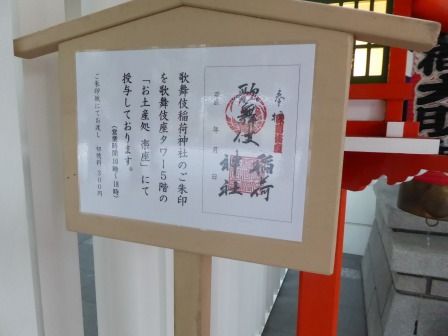 奉拝
歌舞伎
稲荷
神社
年 月 日
歌舞伎稲荷神社のご朱印
を歌舞伎座タワー5階の
「お土産処 木挽座」にて
授与しております。
(営業時間10時~18時)
ご朱印紙にてお渡し 初穂料300円